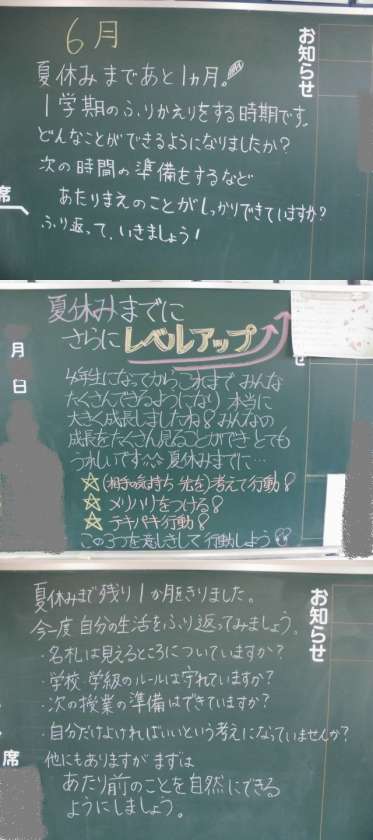 6月
お知らせ
夏休みまであと1ヵ月。
1学期のふりかえりをする時期です。
どんなことができるようになりましたか?
次の時間の準備をするなど
あたりまえのことがしっかりできていますか?
ふり返って、いきましょう!
席
夏休みまでに
さらにレベルアップ
せ
月
日
4年生になってからこれまで みんな
たくさんできるようになり 本当に
大きく成長しましたね! みんなの
成長をたくさん見ることができ とても
うれしいです^^ 夏休みまでに…
☆(相手の気持ち 先を)考えて行動!
☆ メリハリをつける!
☆ テキパキ行動!
この3つを意しきして 行動しよう!!
お知らせ
夏休みまで残り1か月をきりました。
今一度 自分の生活をふり返ってみましょう。
・名札は見えるところについていますか?
・学校 学級のルールは守れていますか?
・次の授業の準備はできていますか?
・自分だけよければいいという考えになっていませんか?
他にもありますが まずは
あたり前のことを自然にできる
ようにしましょう。
席